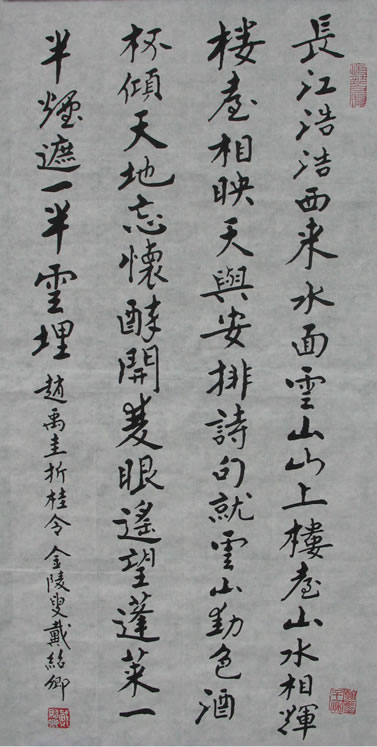 長江浩浩西来水面雲山山上樓臺山水相輝
樓臺相映天與安排詩句就雲山動色酒
杯傾天地忘懷醉開雙眼遙望蓬萊一
半煙遮一半雲埋 趙禹圭折桂令 金陵叟戴紹卿